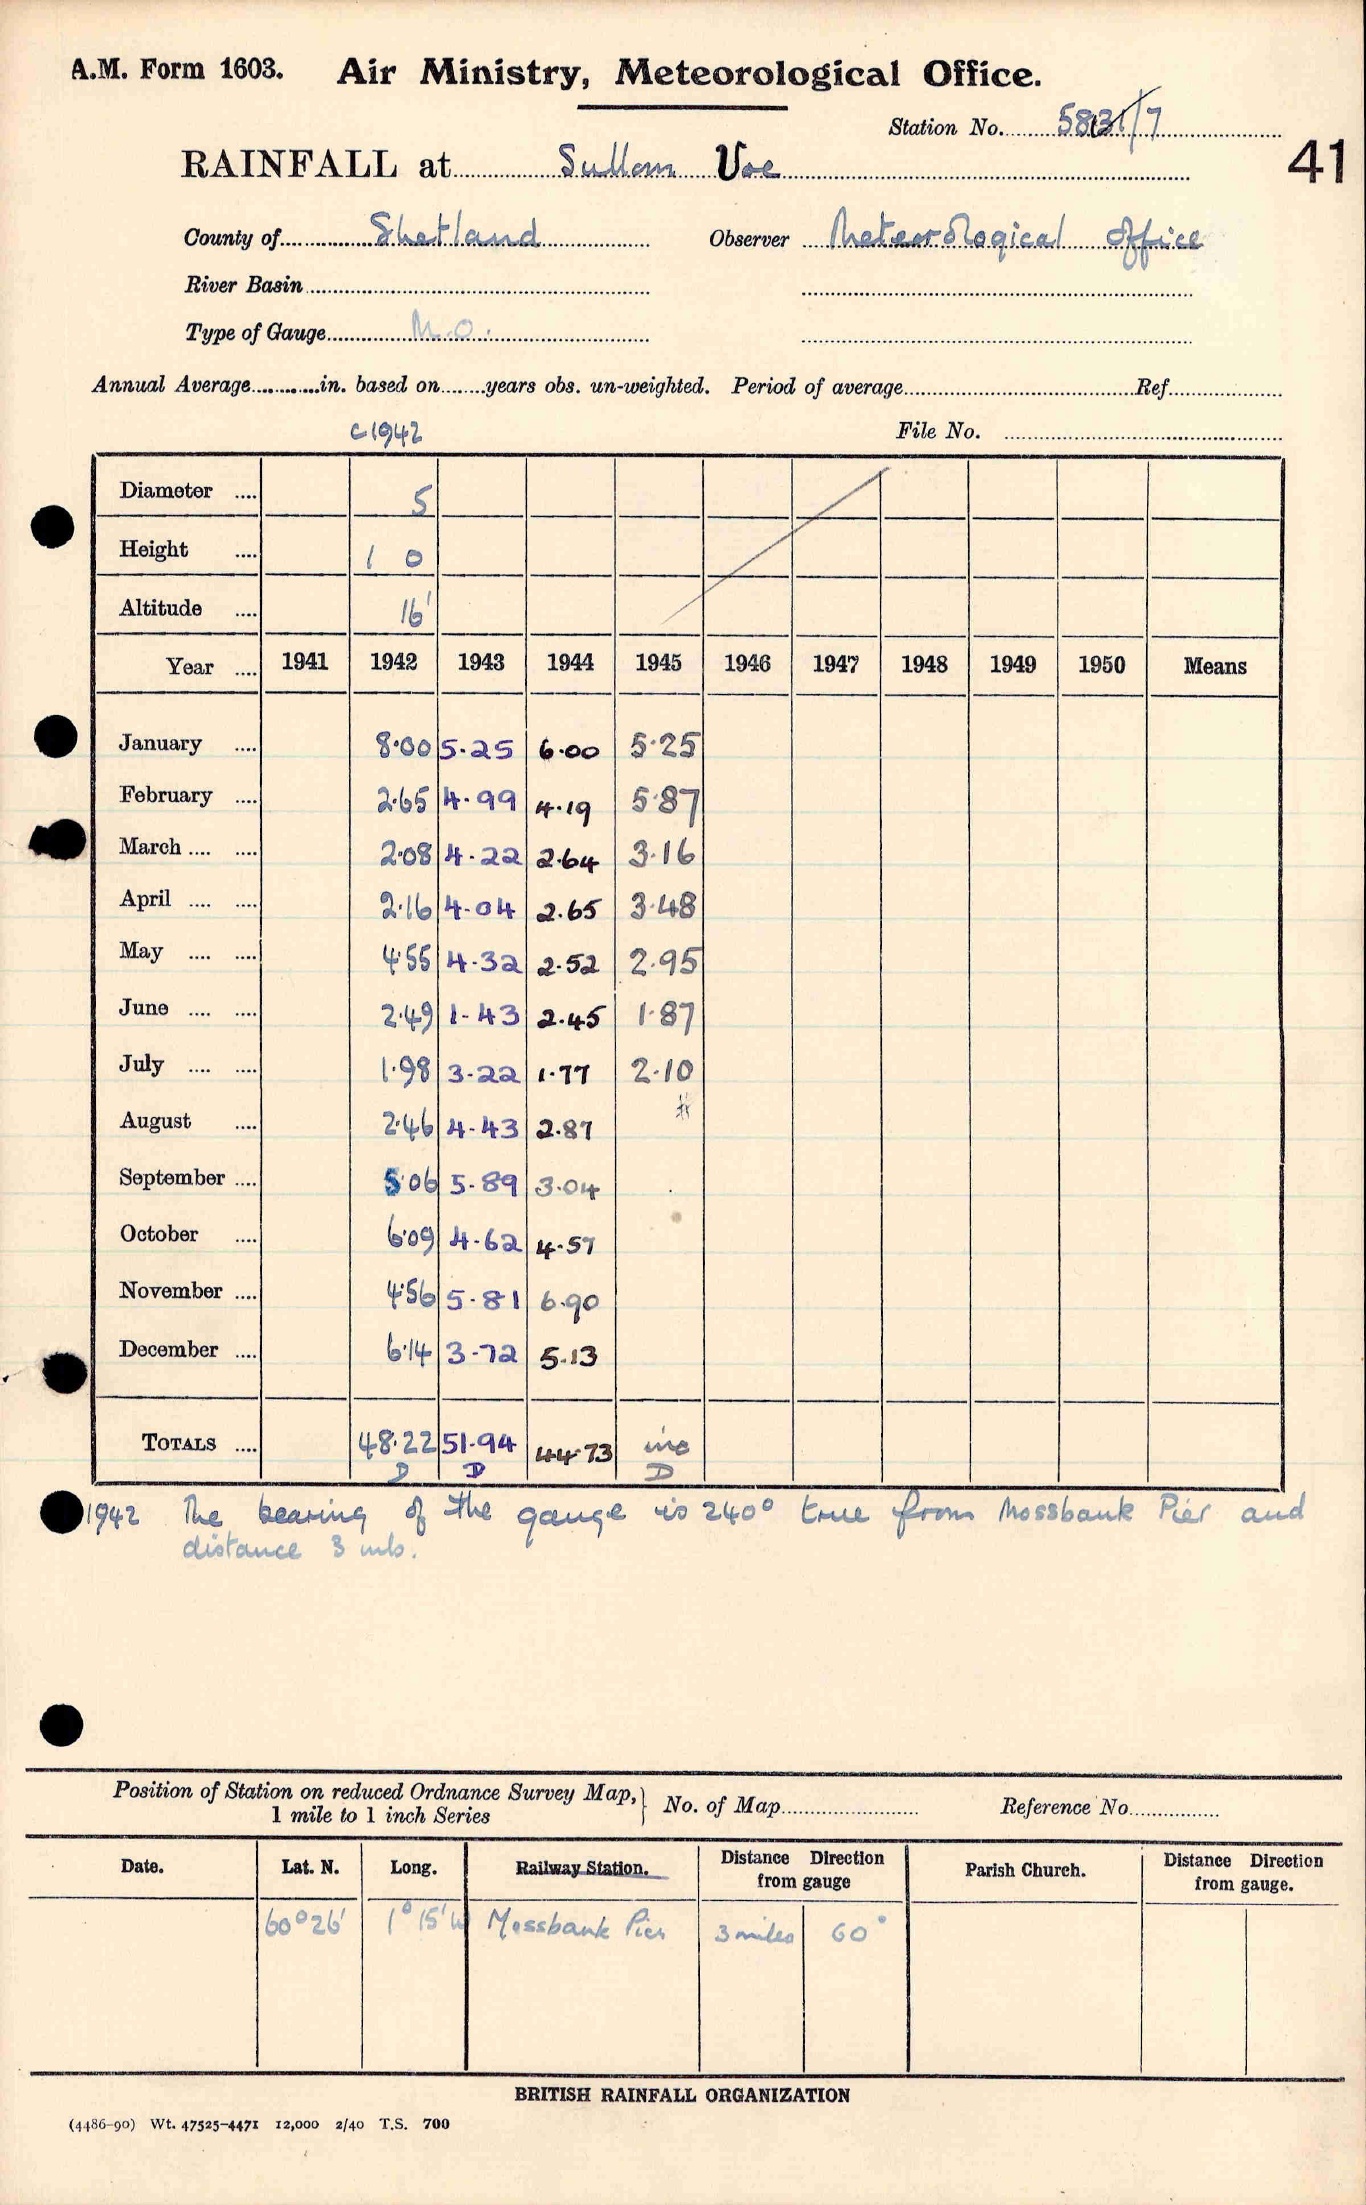 A.M. Form 1603. Air Ministry, Meteorological Office.
Station No. 5831/7
41
RAINFALL at Sullom Voe
County of Shetland Observer Meteorological Office
River Basin
Type of Gauge M.O.
Annual Average in. based on years obs. un-weighted. Period of average Ref.
c1942 File No.
Diameter 5
Height 1 0
Altitude 16'
Year 1941 1942 1943 1944 1945 1946 1947 1948 1949 1950 Means
January 8·00 5·25 6·00 5·25
February 2·65 4·99 4·19 5·87
March 2·08 4·22 2·64 3·16
April 2·16 4·04 2·65 3·48
May 4·55 4·32 2·52 2·95
June 2·49 1·43 2·45 1·87
July 1·98 3·22 1·77 2·10
#
August 2·46 4·43 2·87
September 5·06 5·89 3·04
October 6·09 4·62 4·57
November 4·56 5·81 6·90
December 6·14 3·72 5·13
TOTALS 48·22 51·94 44·73 inc
D D D
1942 The bearing of the gauge is 240° true from Mossbank Pier and
distance 3 mls.
Position of Station on reduced Ordnance Survey Map, 1 mile to 1 inch Series } No. of Map Reference No.
Date. Lat. N. Long. Railway Station. Distance Direction from gauge Parish Church. Distance Direction from gauge.
60°26' 1°15'W Mossbank Pier 3 miles 60°
BRITISH RAINFALL ORGANIZATION
(4486-90) Wt. 47525-4471 12,000 2/40 T.S. 700